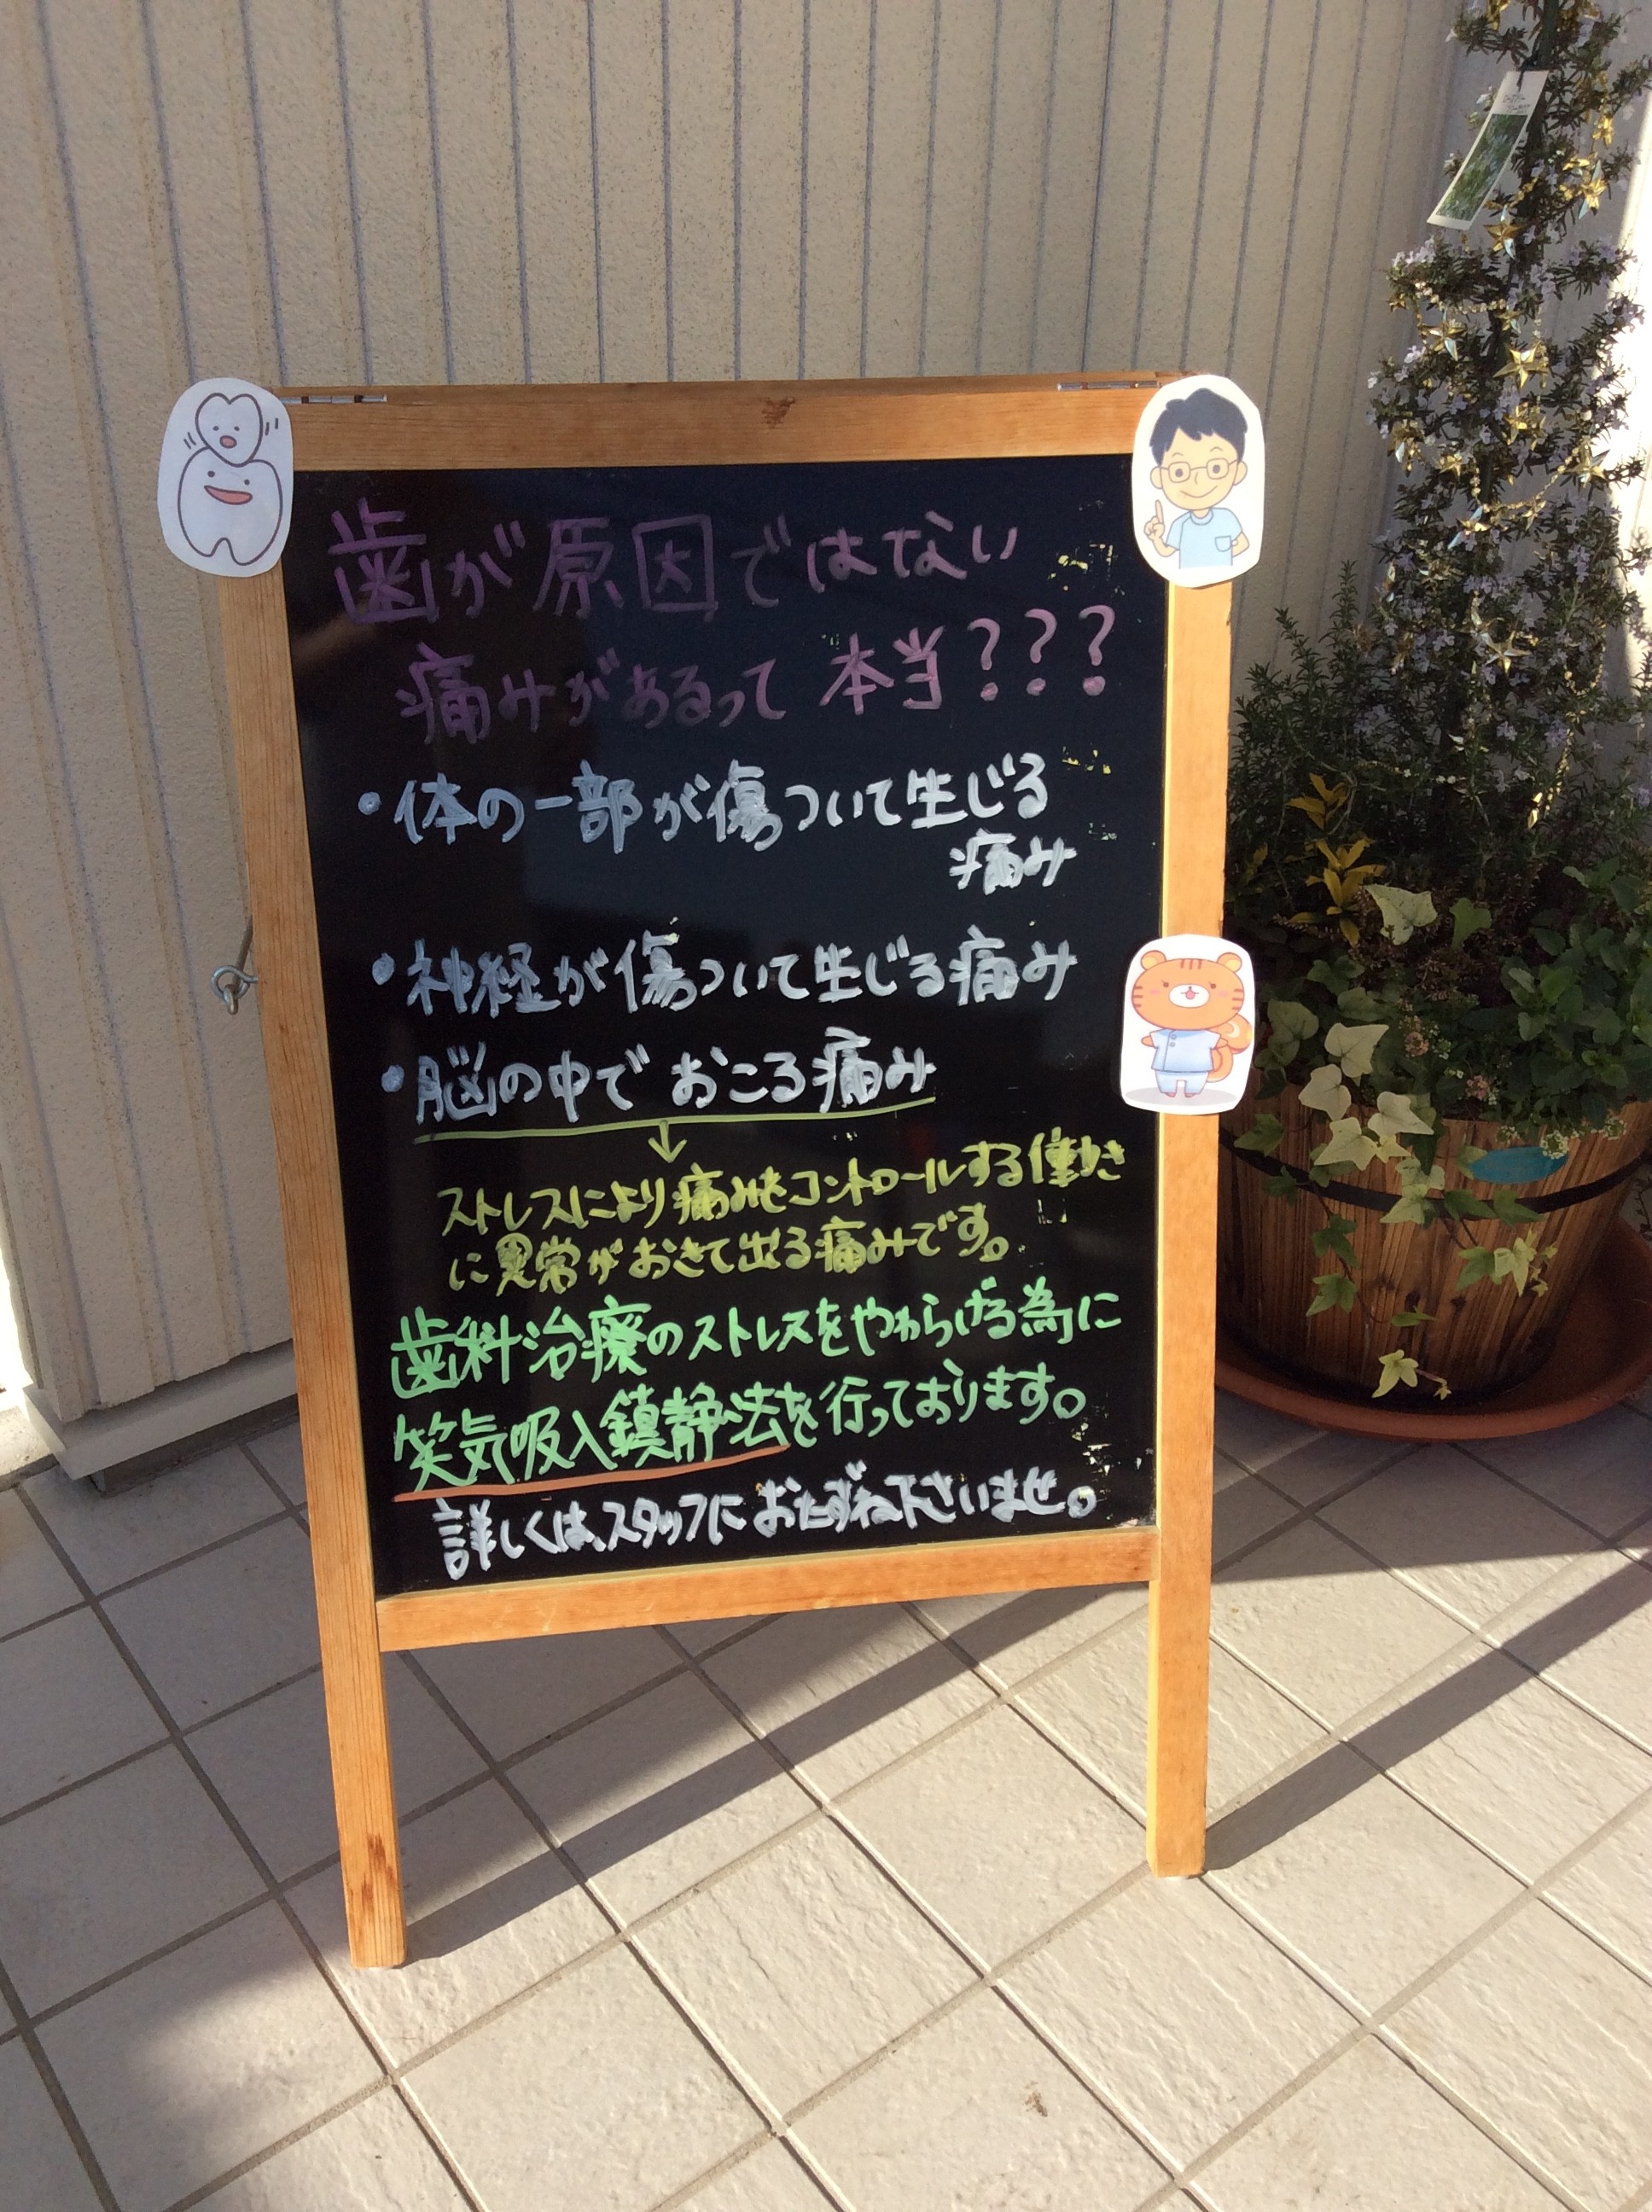 歯が原因ではない
痛みがあるって 本当???
・体の一部が傷ついて生じる
痛み
・神経が傷ついて生じる痛み
・脳の中でおこる痛み
↓
ストレスにより痛みをコントロールする働き
に異常がおきて出る痛みです。
歯科治療のストレスをやわらげる為に
笑気吸入鎮静法を行っております。
詳しくは、スタッフにおたずね下さいませ。